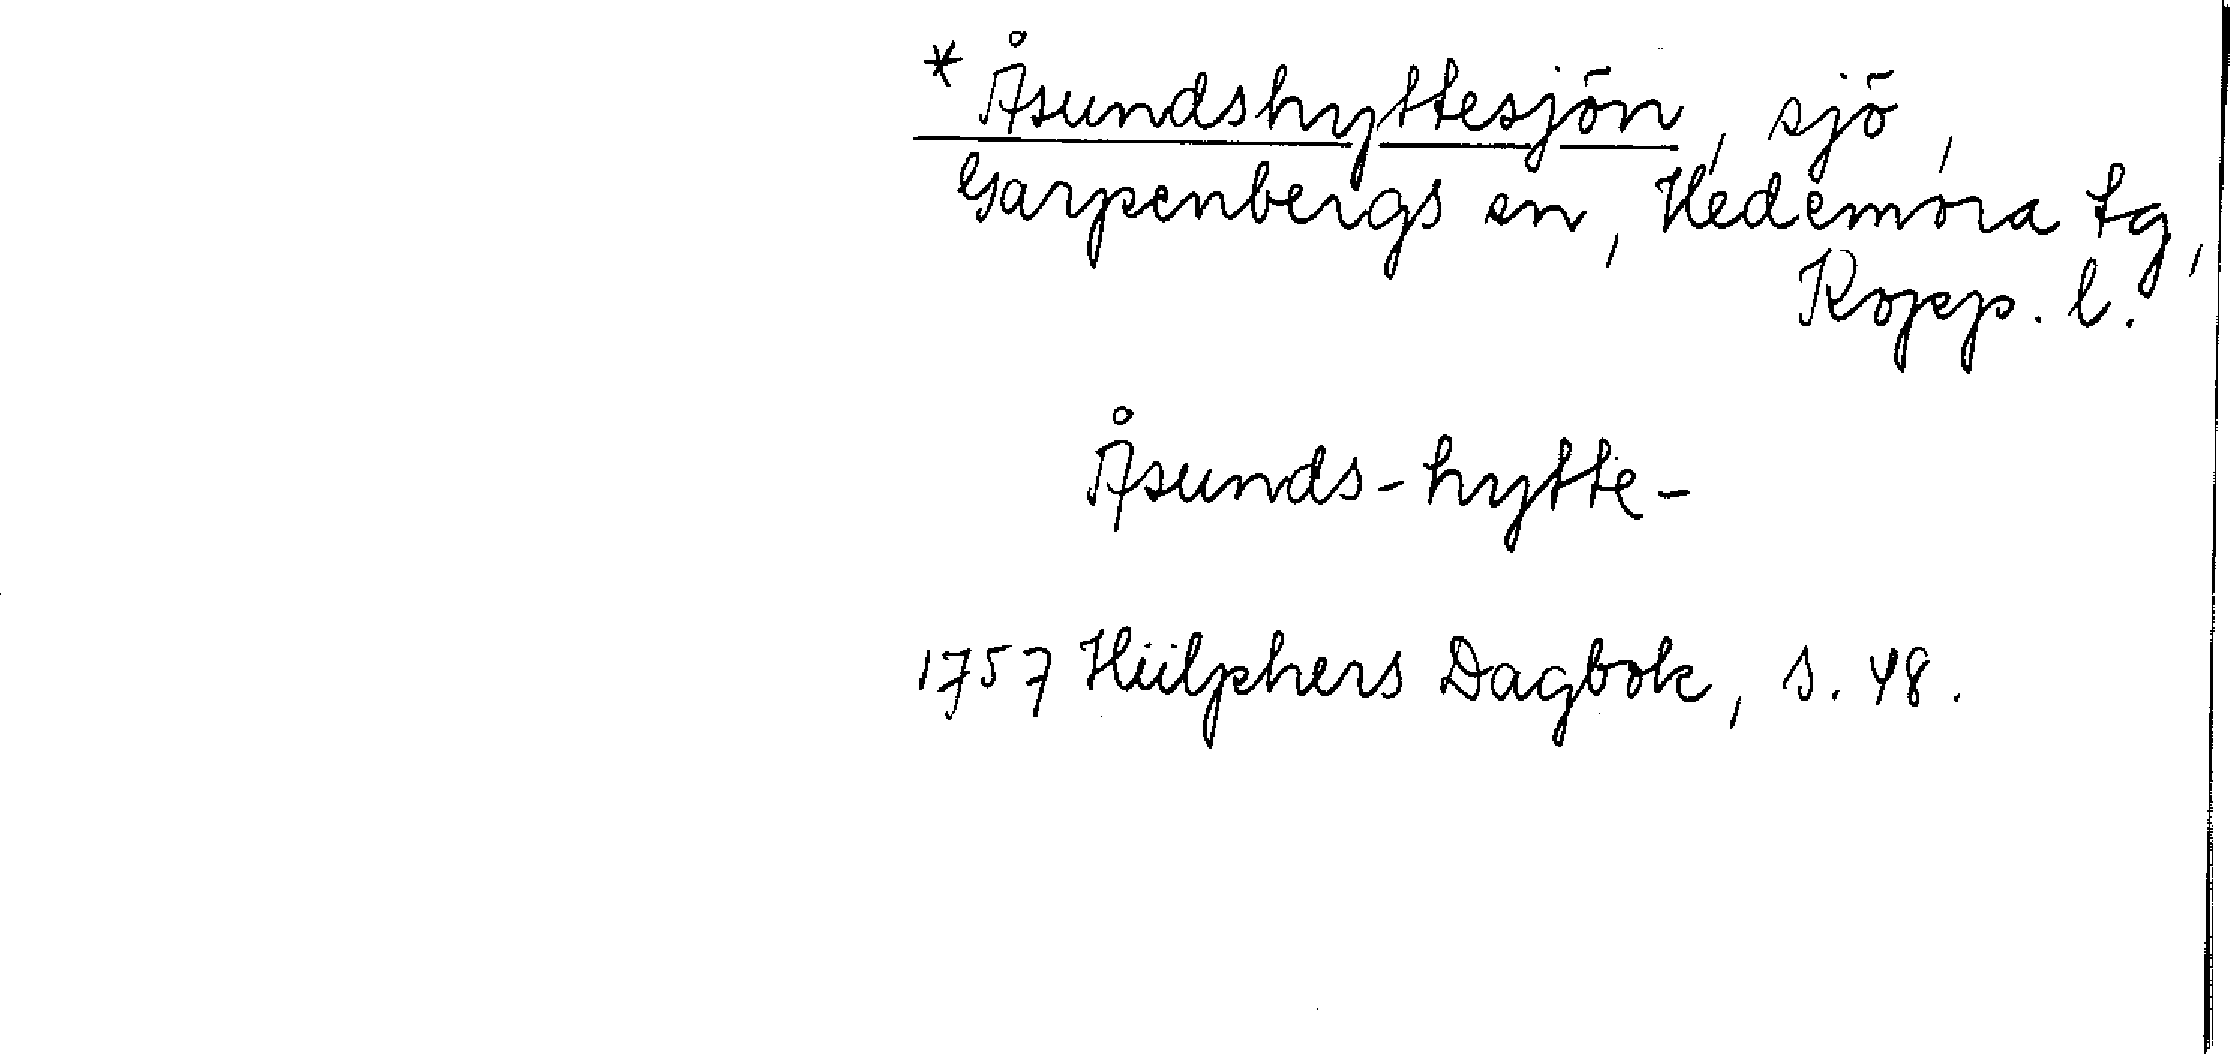 * Åsundshyttesjön, sjö,
Garpenbergs sn, Hedemora tg,
Kopp. l.
Åsunds-hytte-
1757 Hülphers Dagbok, s. 48.